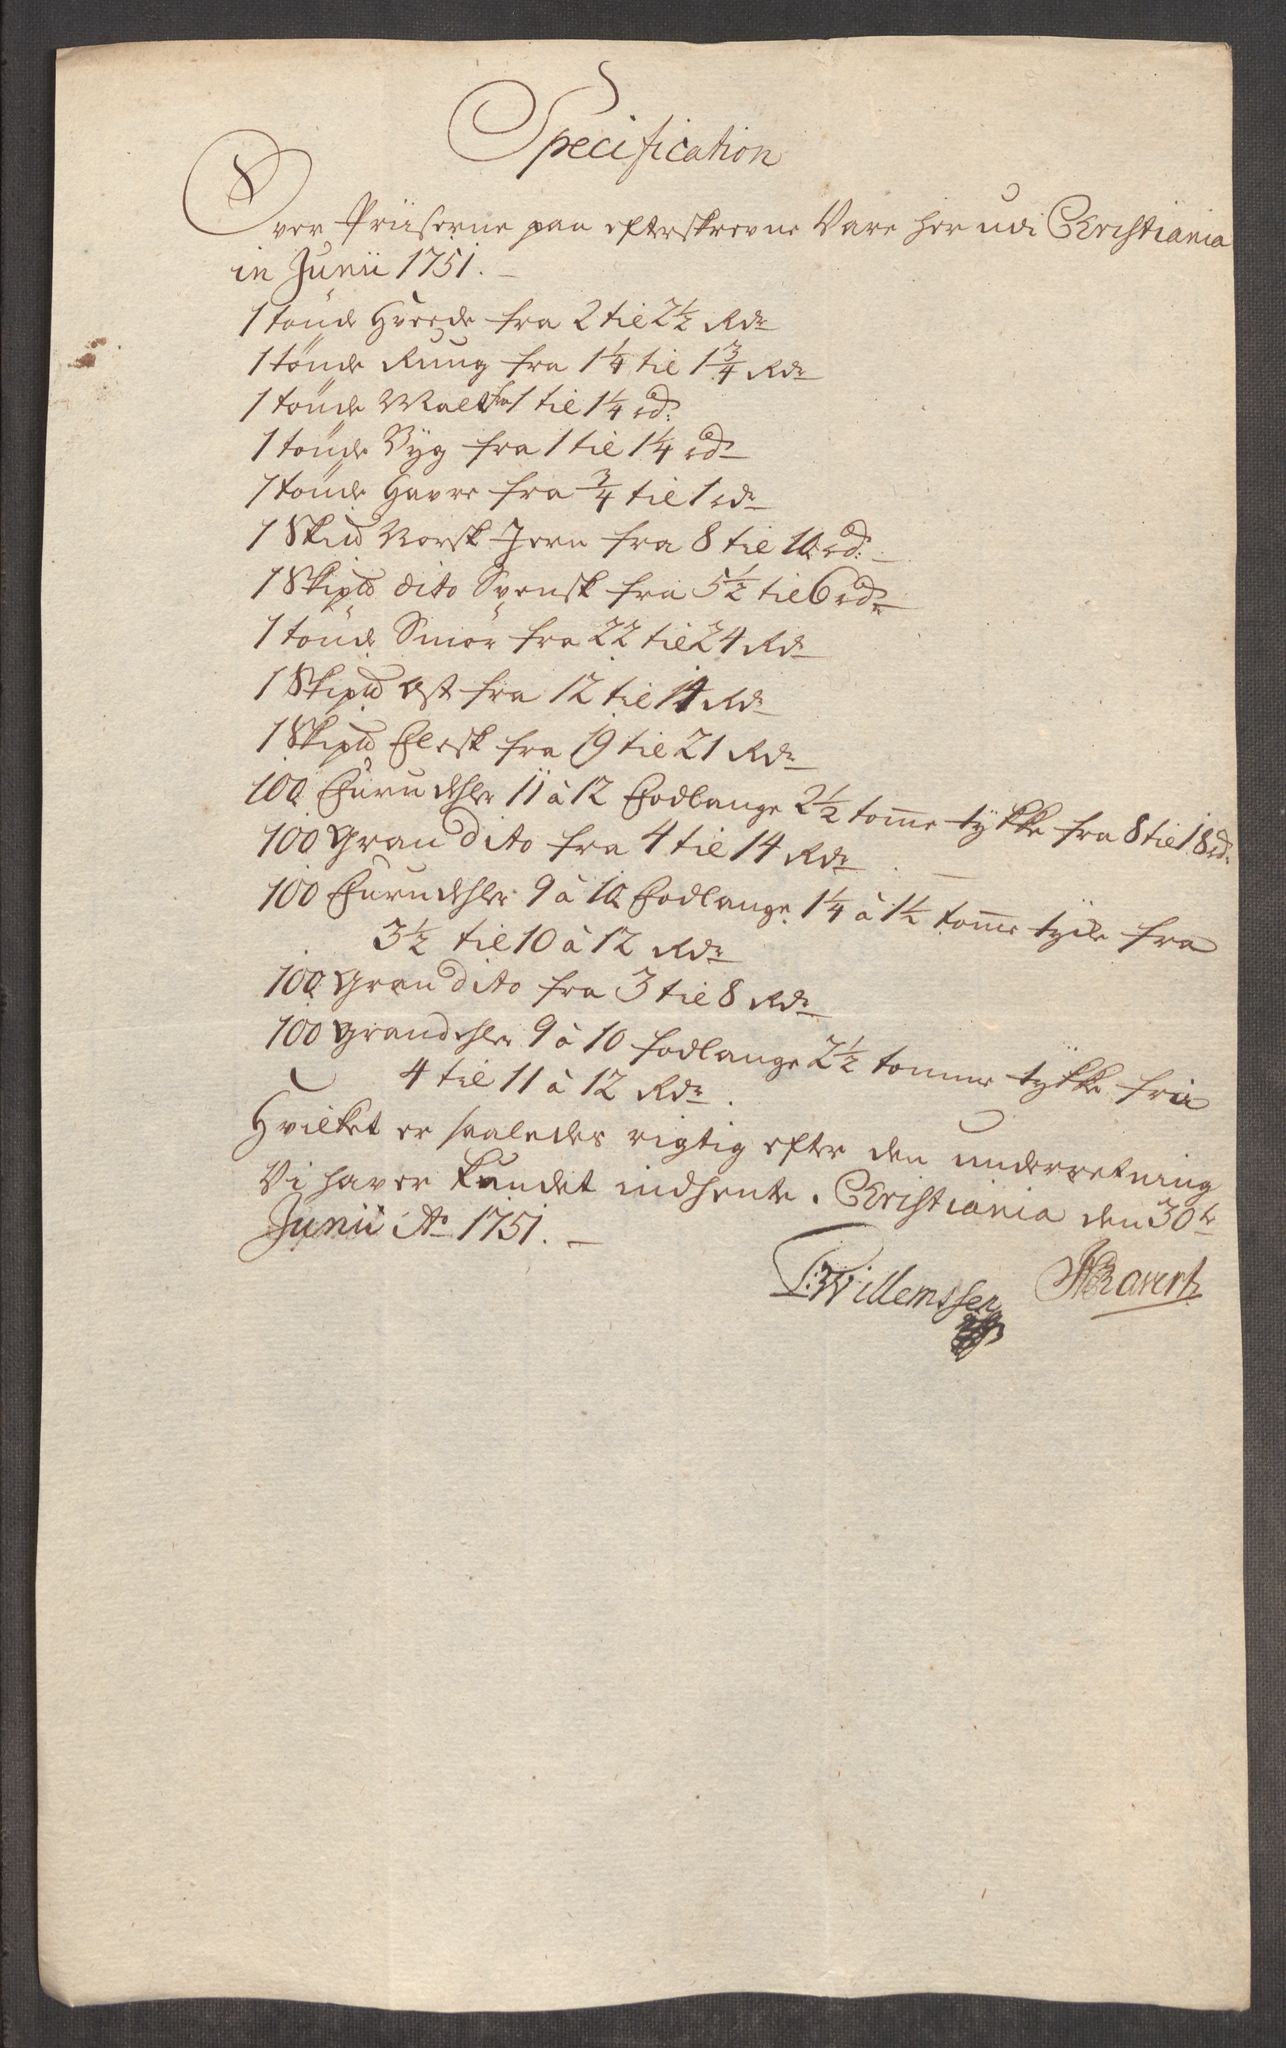 Specification
Over Priiserne paa efterskrevne Vare her udi Christiania
in Junii 1751.
1 tönde Hvede fra 2 til 2½ Rdr
1 tönde Rüug fra 1¼ til 1¾ Rdr
1 tönde Malt fra 1 til 1¼ rd:
1 tönde Byg fra 1 til 1¼ rdr
1 tönde Havre fra ¾ til 1 rdr
1 Skid Norsk Jern fra 8 til 10 rd:
1 Skipld dito Svensk fra 5½ til 6 rdr
1 tönde Smör fra 22 til 24 Rdr
1 Skipld Ost fra 12 til 14 Rdr
1 Skipld Flesk fra 19 til 21 Rdr
100 Furu dehler 11 à 12 Fodlange 2½ tom̄e tÿkke fra 8 til 18 rd:
100 Gran dito fra 4 til 14 Rdr
100 Furu dehler 9 à 10 Fodlange 1¼ à 1½ tom̄e fra
3½ til 10 à 12 Rdr
100 Gran dito fra 3 til 8 Rdr
100 Grandehler 9 à 10 fodlange 2½ tommer tÿkke fra
4 til 11 à 12 Rdr.
Hvilket er saaledes rigtig efter den underretning
Vi haver kundet indhente. Christiania den 30te
Junii Ao 1751.
T: Willemssen